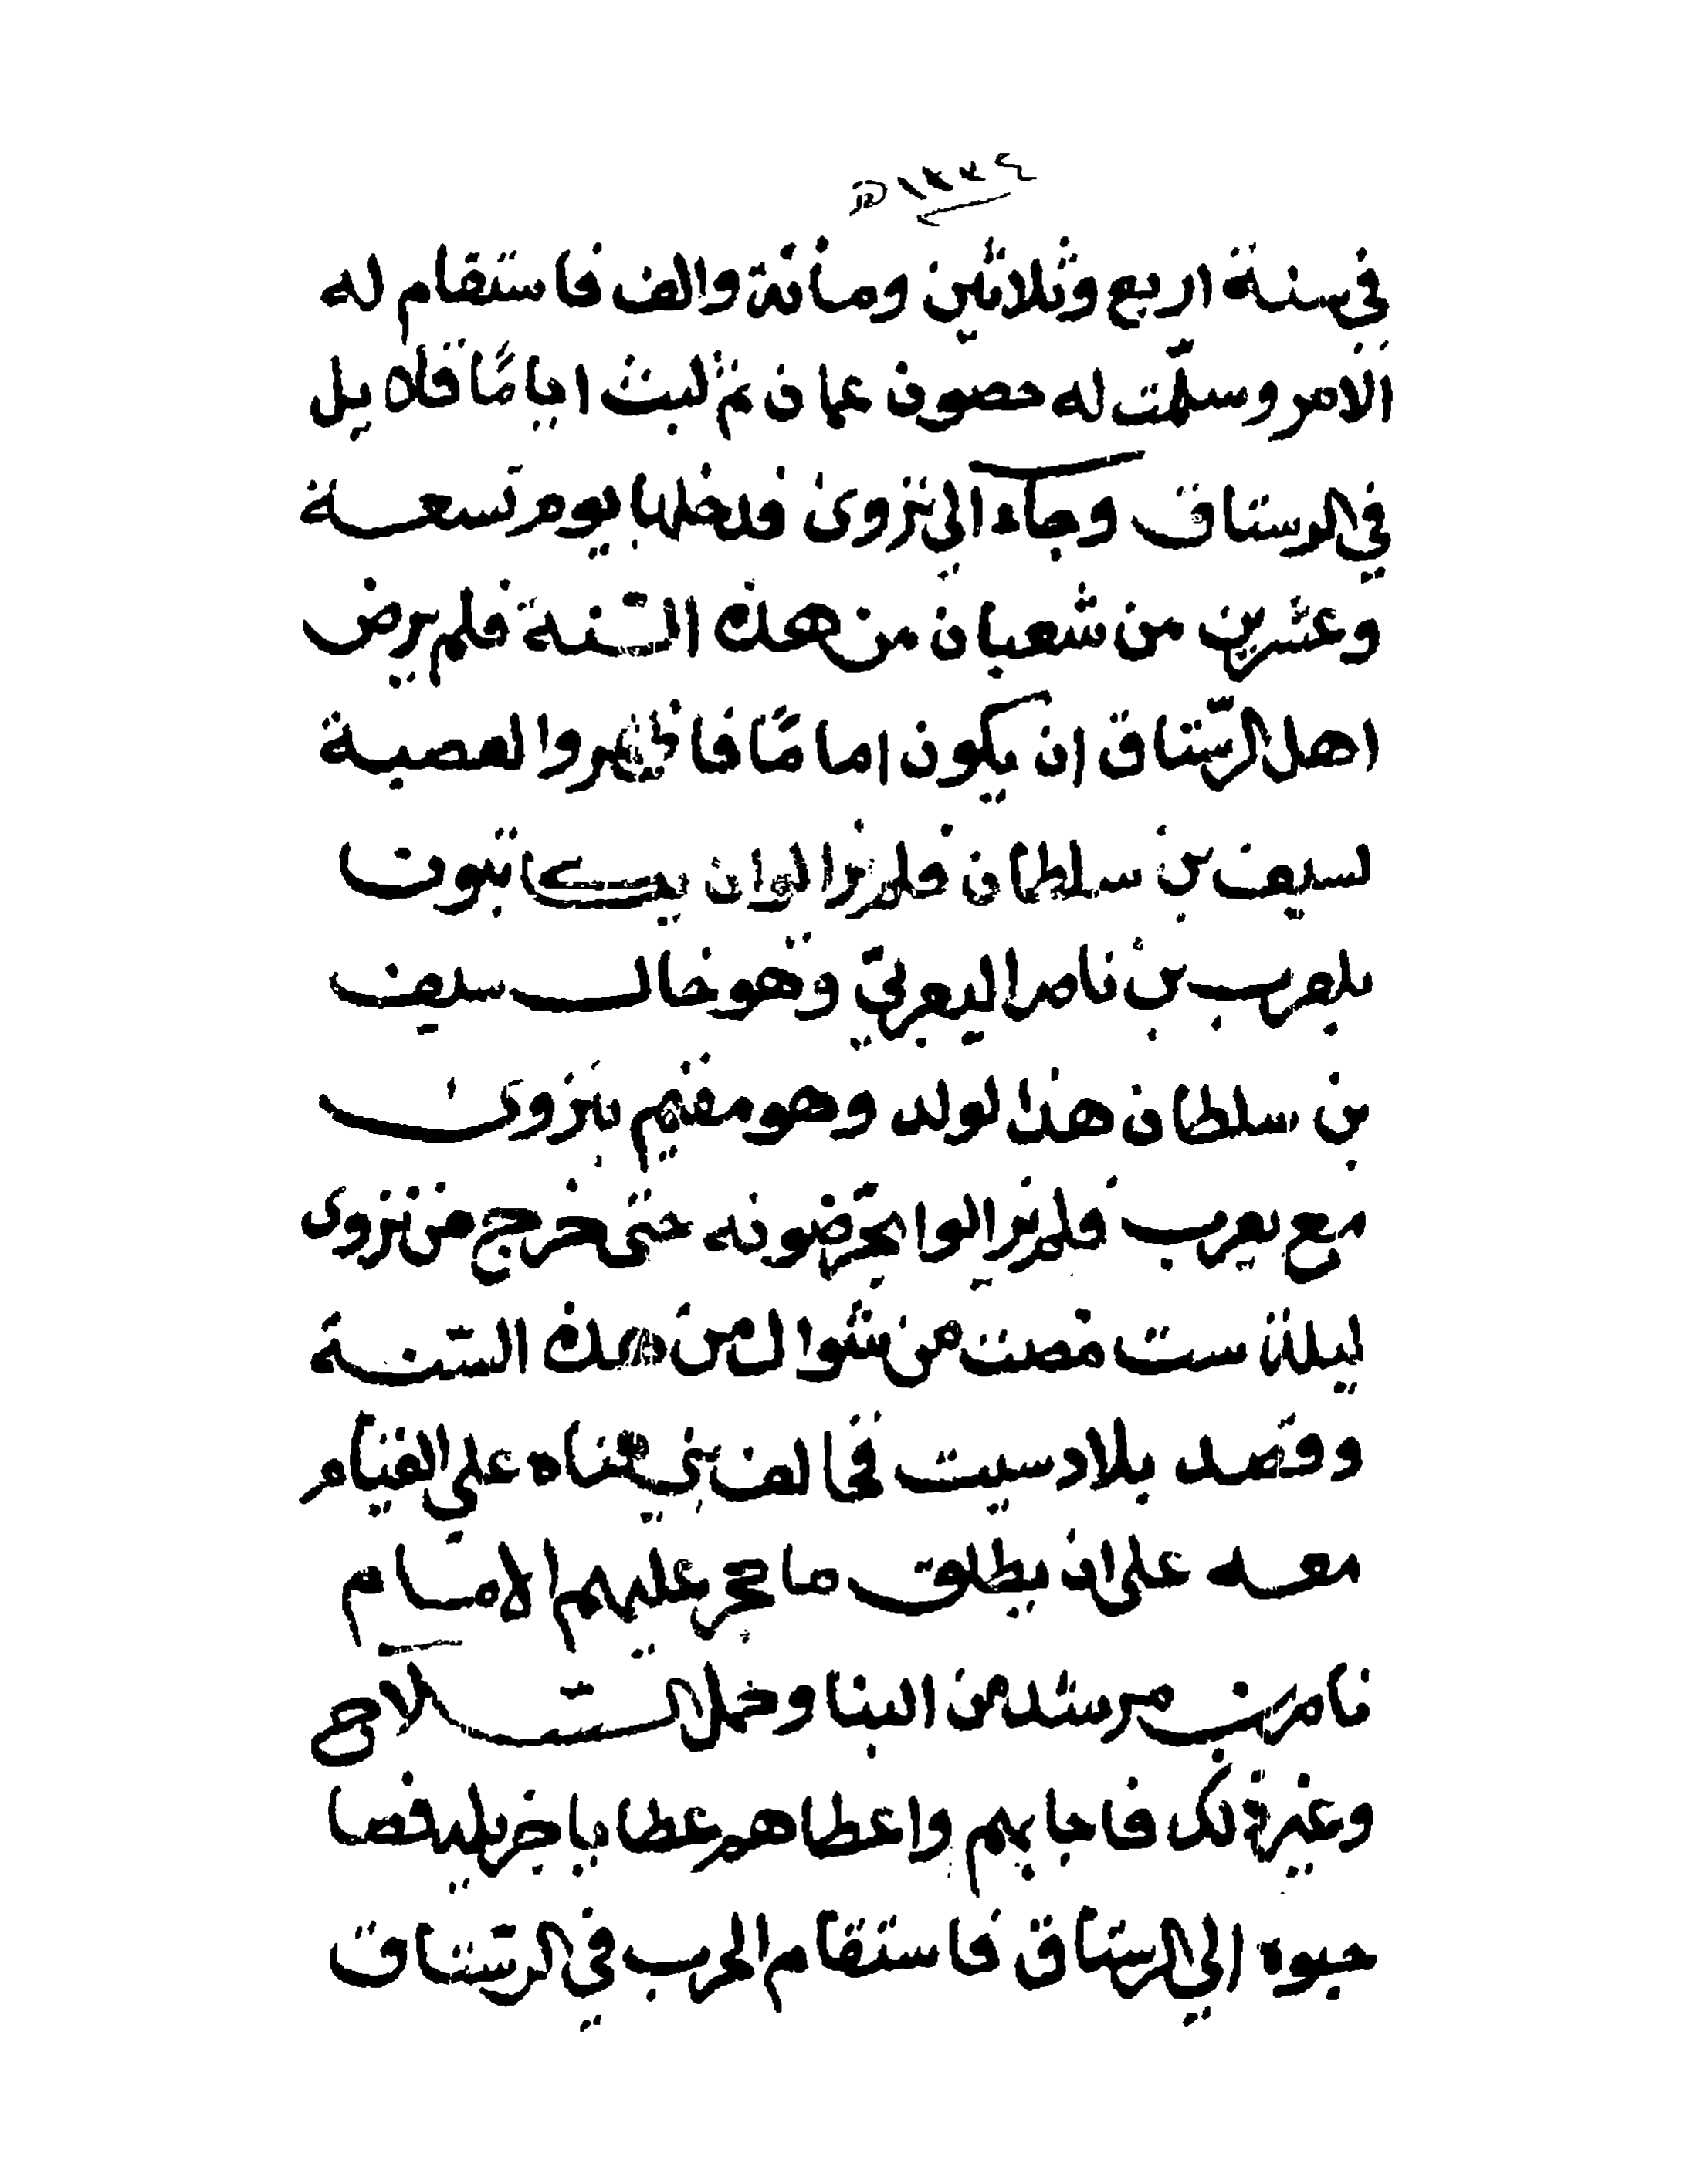 في سنة اربع وثلاثين ومأئة والف فاستقام له
الامر وسلّمت له حصون عمان ثم لبث اياماً قلايل
في الرستاق وجآء الى نزوى فدخلها يوم تسعة
وعشرين من شعبان من هذه السّنة فلم يرض
اهل الرّستاق ان يكون اماماً فاظهروا العصبة
لسيف بن سلطان فلم يزالوا ان يكاتبوت
بلعرب بن ناصر اليعربيّ وهو خال سيف
بن سلطان هذا لولد وهو مقيم بنزوى
مع يعرب فلم يزالوا يحرّضونه حتى خرج من نزوى
ليلة ست مضت من شوال من هذه السّنة
وقصد بلاد سيت فحالف بني هناه على القيام
معه على ان يطلق ما حجر عليهم الامام
ناصر بن مرشد من البنا وحمل السّلاح
وغير ذلك فاجابهم واعطاهم عطايا جزيلة فصا
حبوه الى الرستاق فاستقام الحرب في الرّستاق